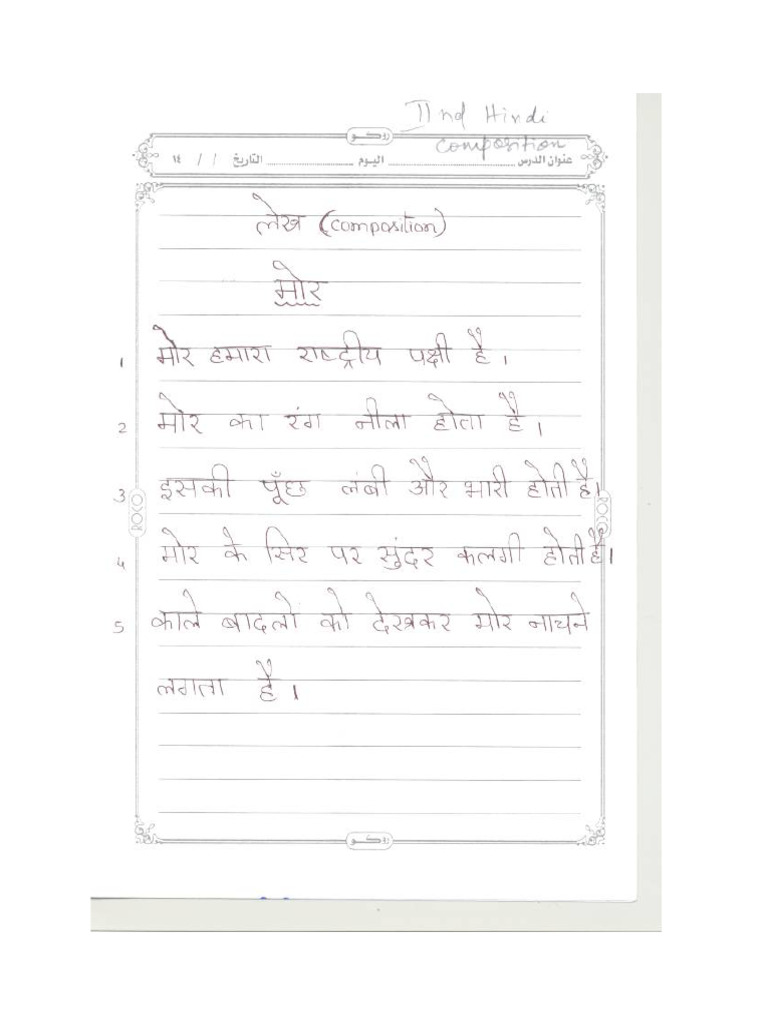 IInd Hindi
composition
روكو
عنوان الدرس ........................ اليوم ........................ التاريخ / / ١٤
लेख (composition)
मोर
1 मोर हमारा राष्ट्रीय पक्षी है।
2 मोर का रंग नीला होता है।
3 इसकी पूँछ लंबी और भारी होती है।
ROCO
ROCO
4 मोर के सिर पर सुंदर कलगी होती है।
5 काले बादलों को देखकर मोर नाचने
लगता है।
روكو